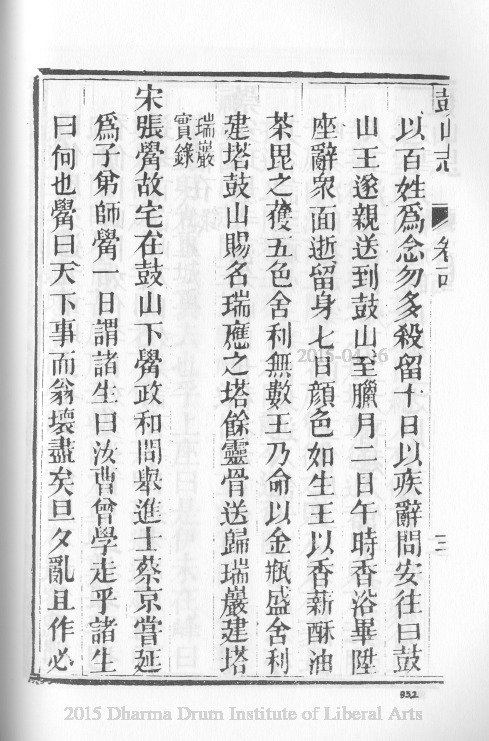 鼓山志 卷首 三
以百姓爲念勿多殺留十日以疾辭問安往曰鼓
山王遂親送到鼓山至臘月二日午時香浴畢陞
座辭衆面逝留身七日顏色如生王以香薪酥油
茶毘之獲五色舍利無數王乃命以金瓶盛舍利
建塔鼓山賜名瑞應之塔餘靈骨送歸瑞巖建塔
瑞巖
實錄
宋張觷故宅在鼓山下觷政和間舉進士蔡京嘗延
爲子弟師觷一日謂諸生曰汝曹曾學走乎諸生
曰何也觷曰天下事而翁壞盡矣旦夕亂且作必
932
2015-04-16
2015 Dharma Drum Institute of Liberal Arts